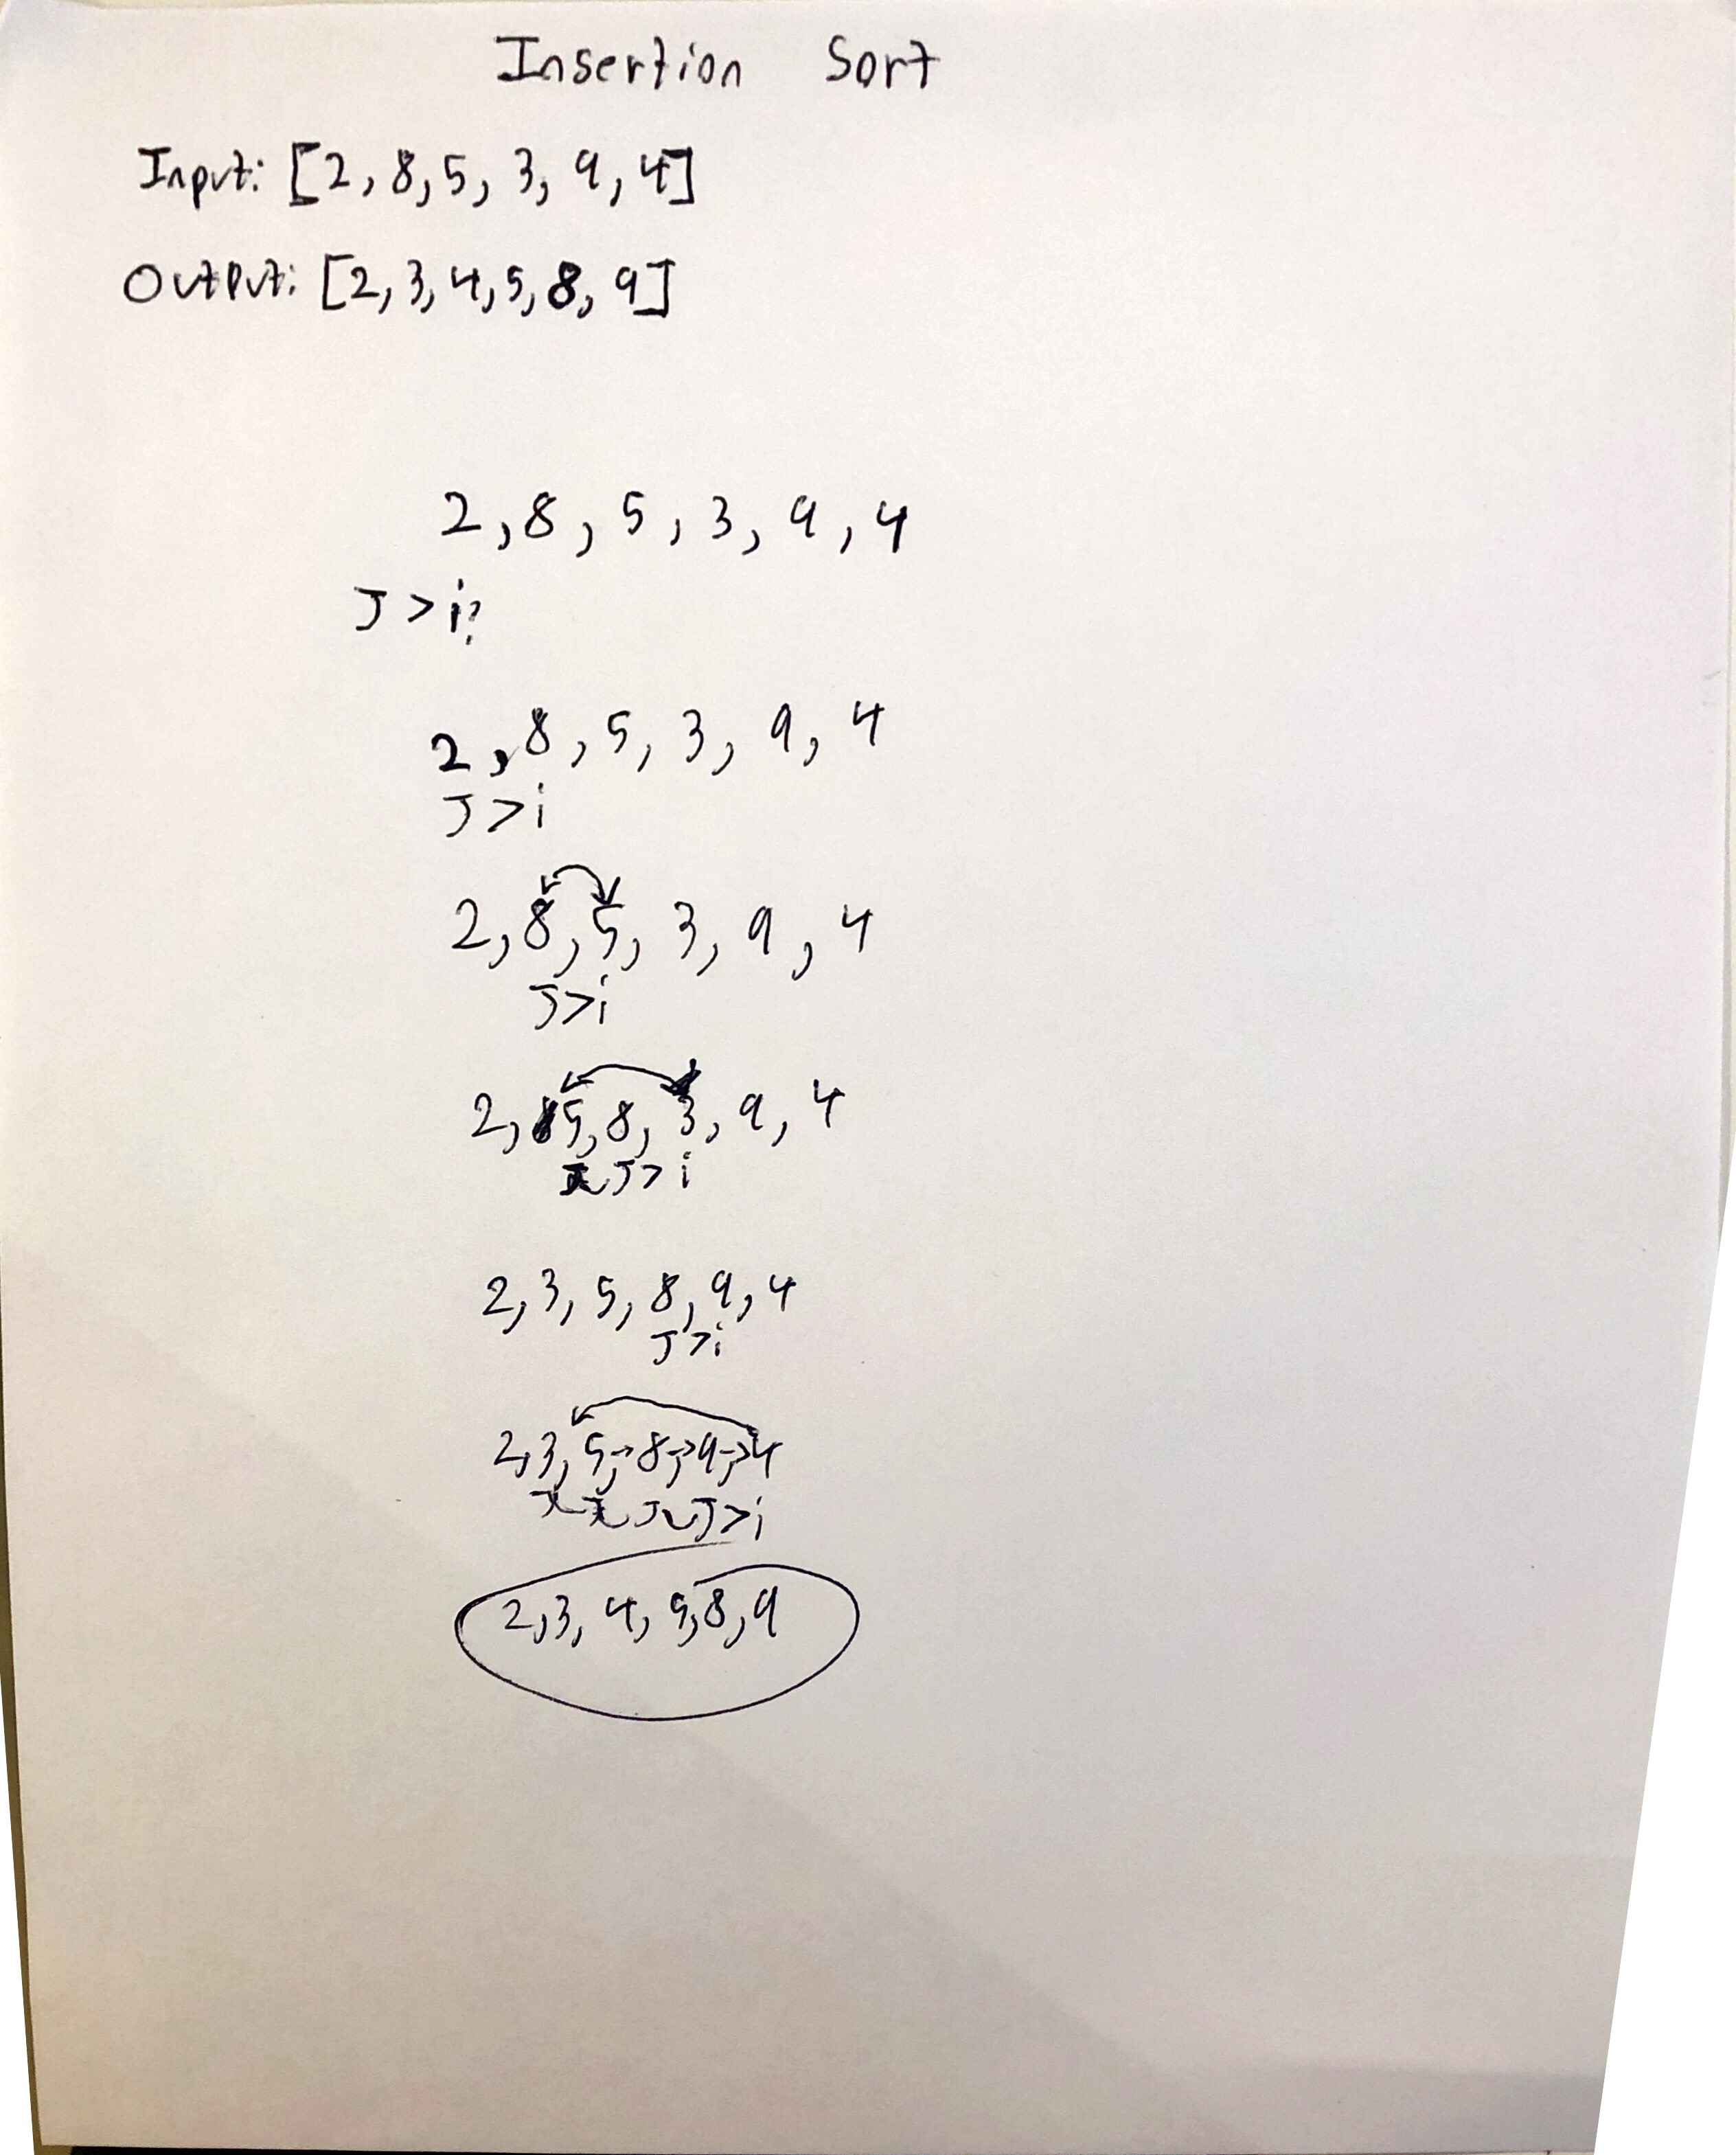 Insertion Sort
Input: [2, 8, 5, 3, 9, 4]
Output: [2, 3, 4, 5, 8, 9]
2, 8, 5, 3, 9, 4
J > i?
2, 8, 5, 3, 9, 4
J > i
2, 8, 5, 3, 9, 4
J > i
2, 5, 8, 3, 9, 4
J J > i
2, 3, 5, 8, 9, 4
J > i
2, 3, 5, → 8, → 9, → 4
J J J J > i
2, 3, 4, 5, 8, 9